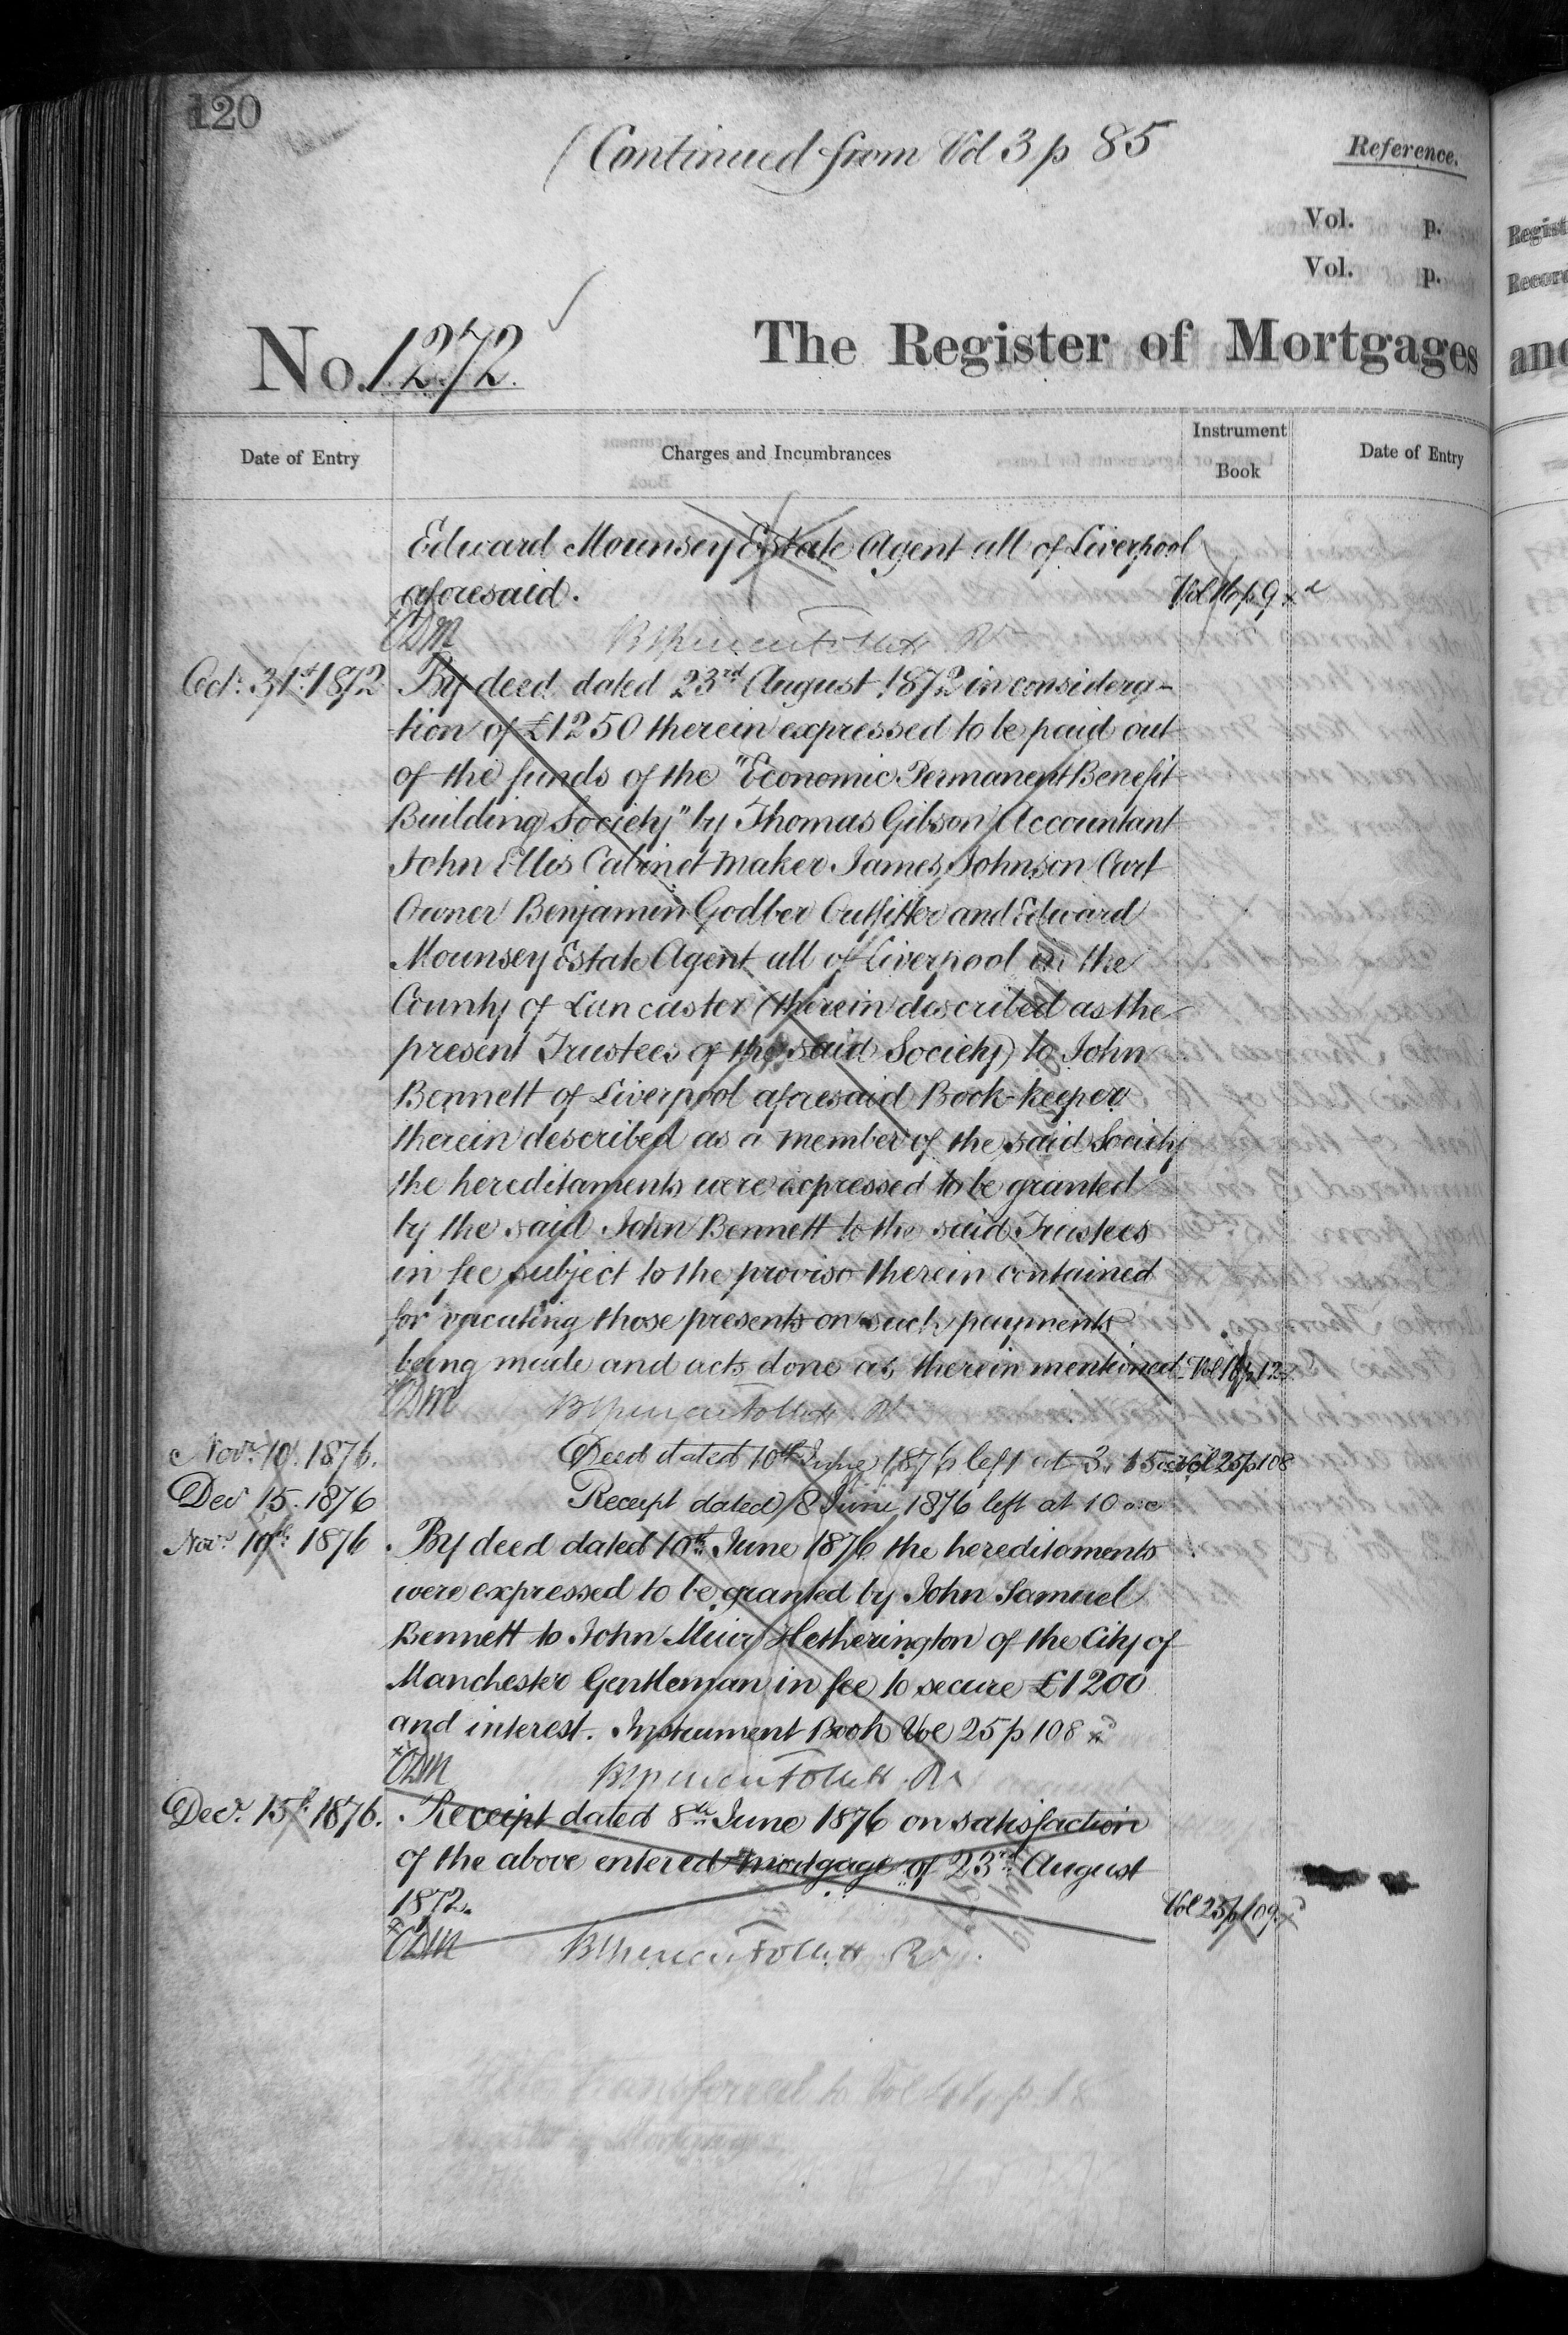 120
(Continued from Vol 3 p 85
Reference.
Vol. p.
Vol. p.
No. 1272.
The Register of Mortgages
Date of Entry
Charges and Incumbrances
Instrument
Book
Date of Entry
Edward Mounsey Estate Agent all of Liverpool
aforesaid. Vol 16 p 9
Octr. 31st. 1872 By deed dated 23rd August 1872 in considera-
tion of £1250 therein expressed to be paid out
of the funds of the "Economic Permanent Benefit
Building Society" by Thomas Gibson Accountant
John Ellis Cabinet maker James Johnson Cart
Owner Benjamin Godber Outfitter and Edward
Mounsey Estate Agent all of Liverpool in the
County of Lancaster (therein described as the
present Trustees of the said Society) to John
Bennett of Liverpool aforesaid Book-keeper
therein described as a member of the said Society
the hereditaments were expressed to be granted
by the said John Bennett to the said Trustees
in fee subject to the proviso therein contained
for vacating those presents on such payments
being made and acts done as therein mentioned Vol 16 p 12
Novr. 10. 1876. Deed dated 10th June 1876 left at 3.15 Vol 25 p 108
Decr 15. 1876 Receipt dated 8 June 1876 left at 10
Novr 10th 1876. By deed dated 10th June 1876 the hereditaments
were expressed to be granted by John Samuel
Bennett to John Muir Hetherington of the City of
Manchester Gentleman in fee to secure £1200
and interest. Instrument Book Vol 25 p 108
Decr. 15th 1876. Receipt dated 8th June 1876 on satisfaction
of the above entered mortgage of 23rd August
1872. Vol 25 p 109
transferred to Vol
Regist
Record
and